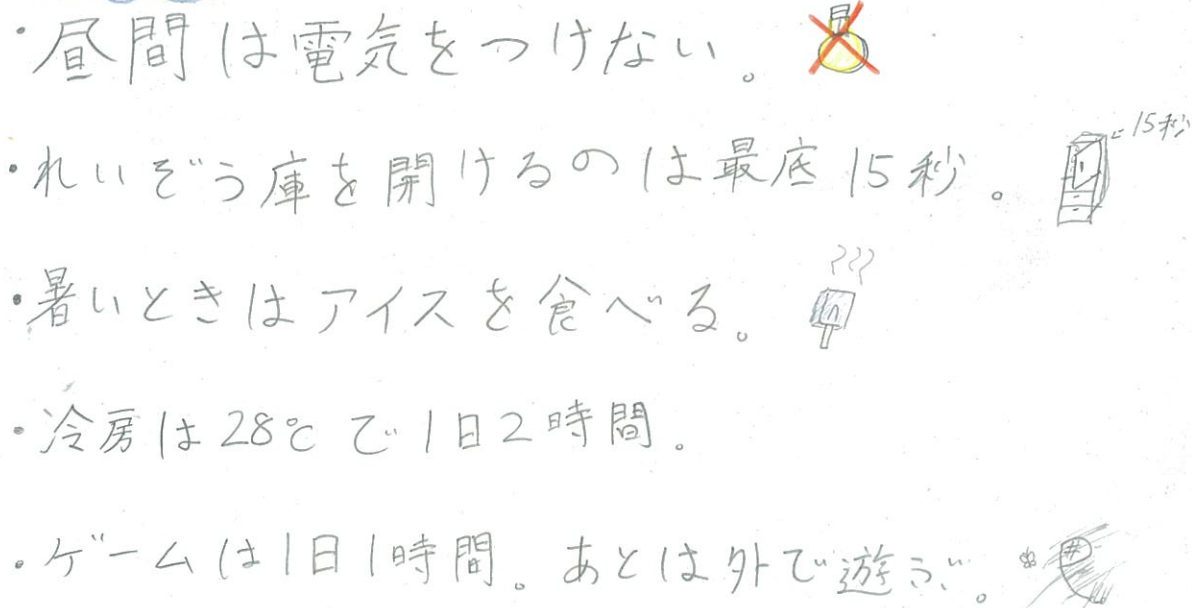 ・昼間は電気をつけない。
・れいぞう庫を開けるのは最底15秒。 ←15秒
・暑いときはアイスを食べる。
・冷房は28℃で1日2時間。
・ゲームは1日1時間。あとは外で遊ぶ。